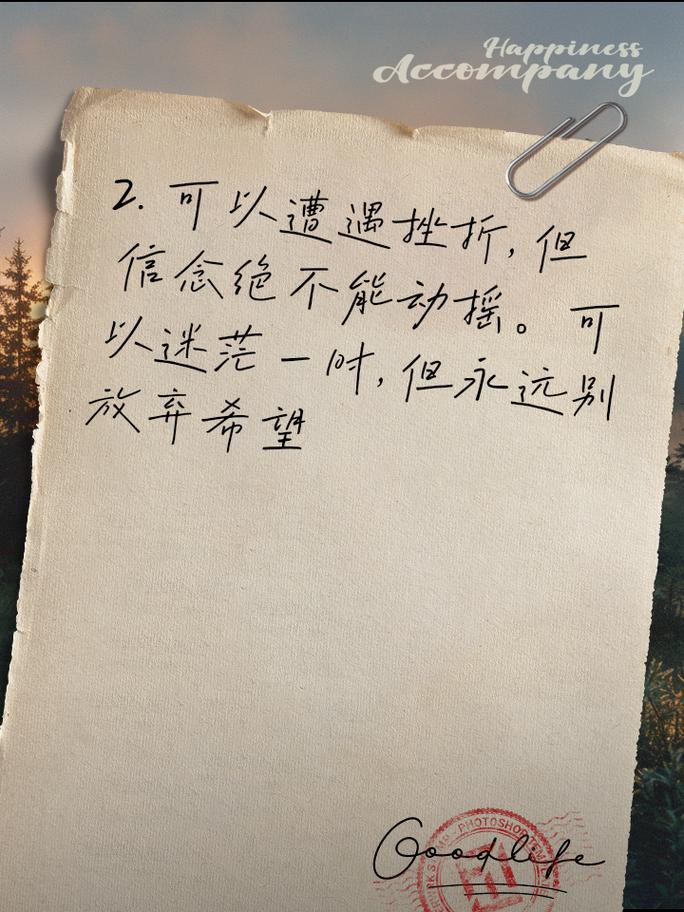 Happiness
Accompany
2. 可以遭遇挫折，但
信念绝不能动摇。可
以迷茫一时，但永远别
放弃希望
Goodlife
PHOTOSHOP